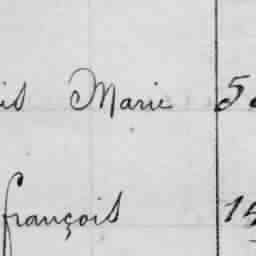 is Marie 5
françois 15